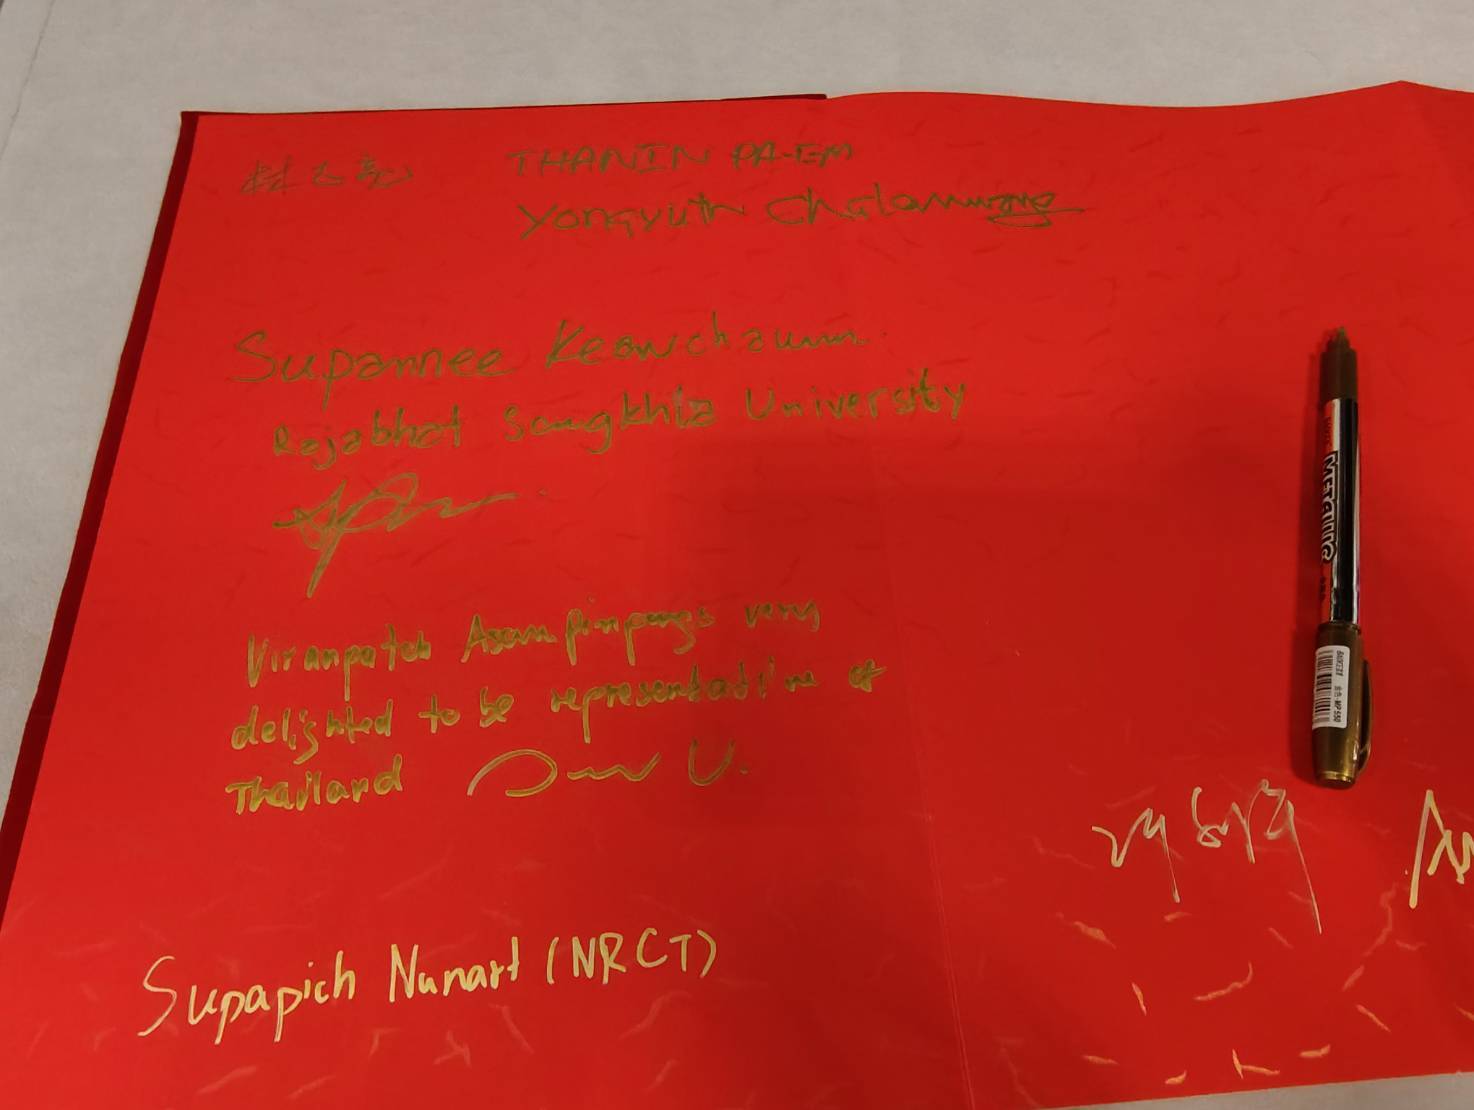 THANIN PA-EM
Yongyuth Chalamwong
Supannee Keawchaum
Rajabhat Songkhla University
Viranpatch Asampinpongs very
delighted to be representative of
Thailand
U.
Supapich Nunart (NRCT)
金色·MP 550